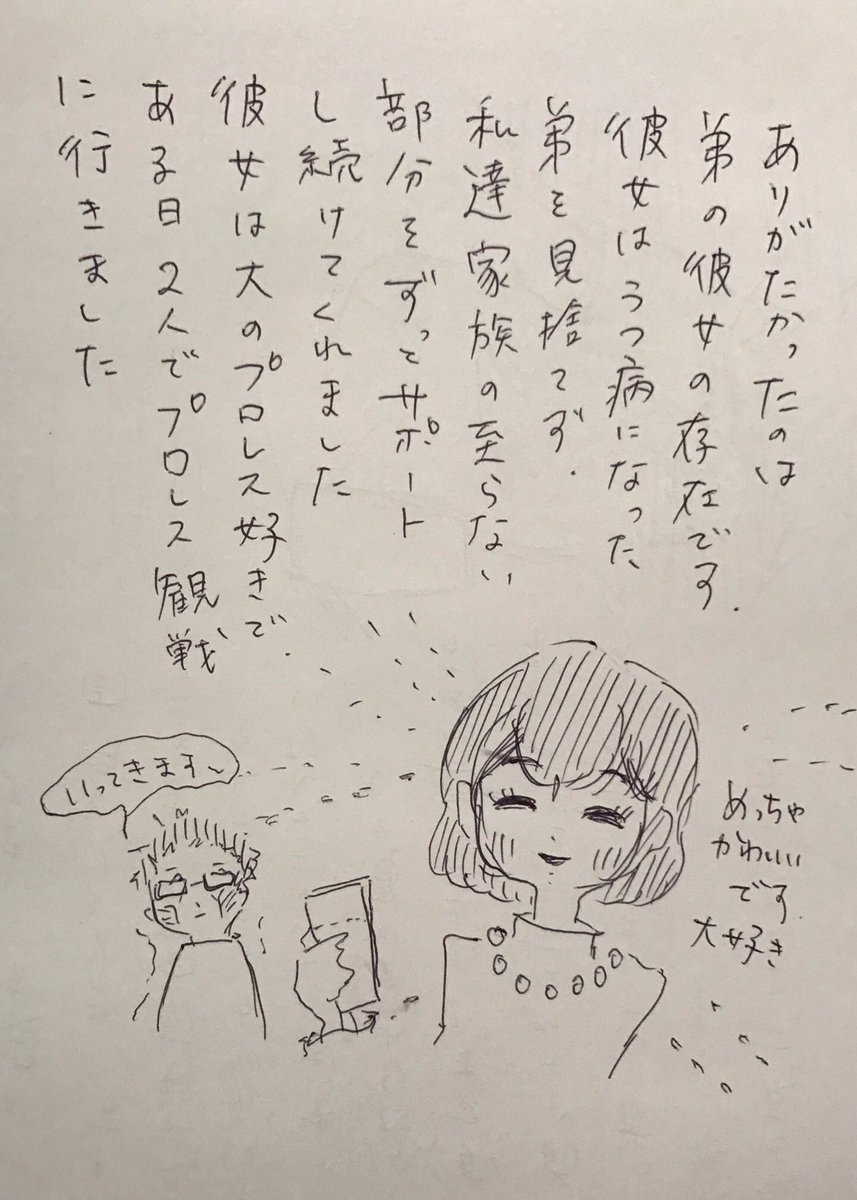 ありがたかったのは
弟の彼女の存在です.
彼女はうつ病になった
弟を見捨てず.
私達家族の至らない
部分をずっとサポート
し続けてくれました
彼女は大のプロレス好きで.
ある日2人でプロレス観戦
に行きました
いってきます〜
めっちゃ
かわいい
です.
大好き